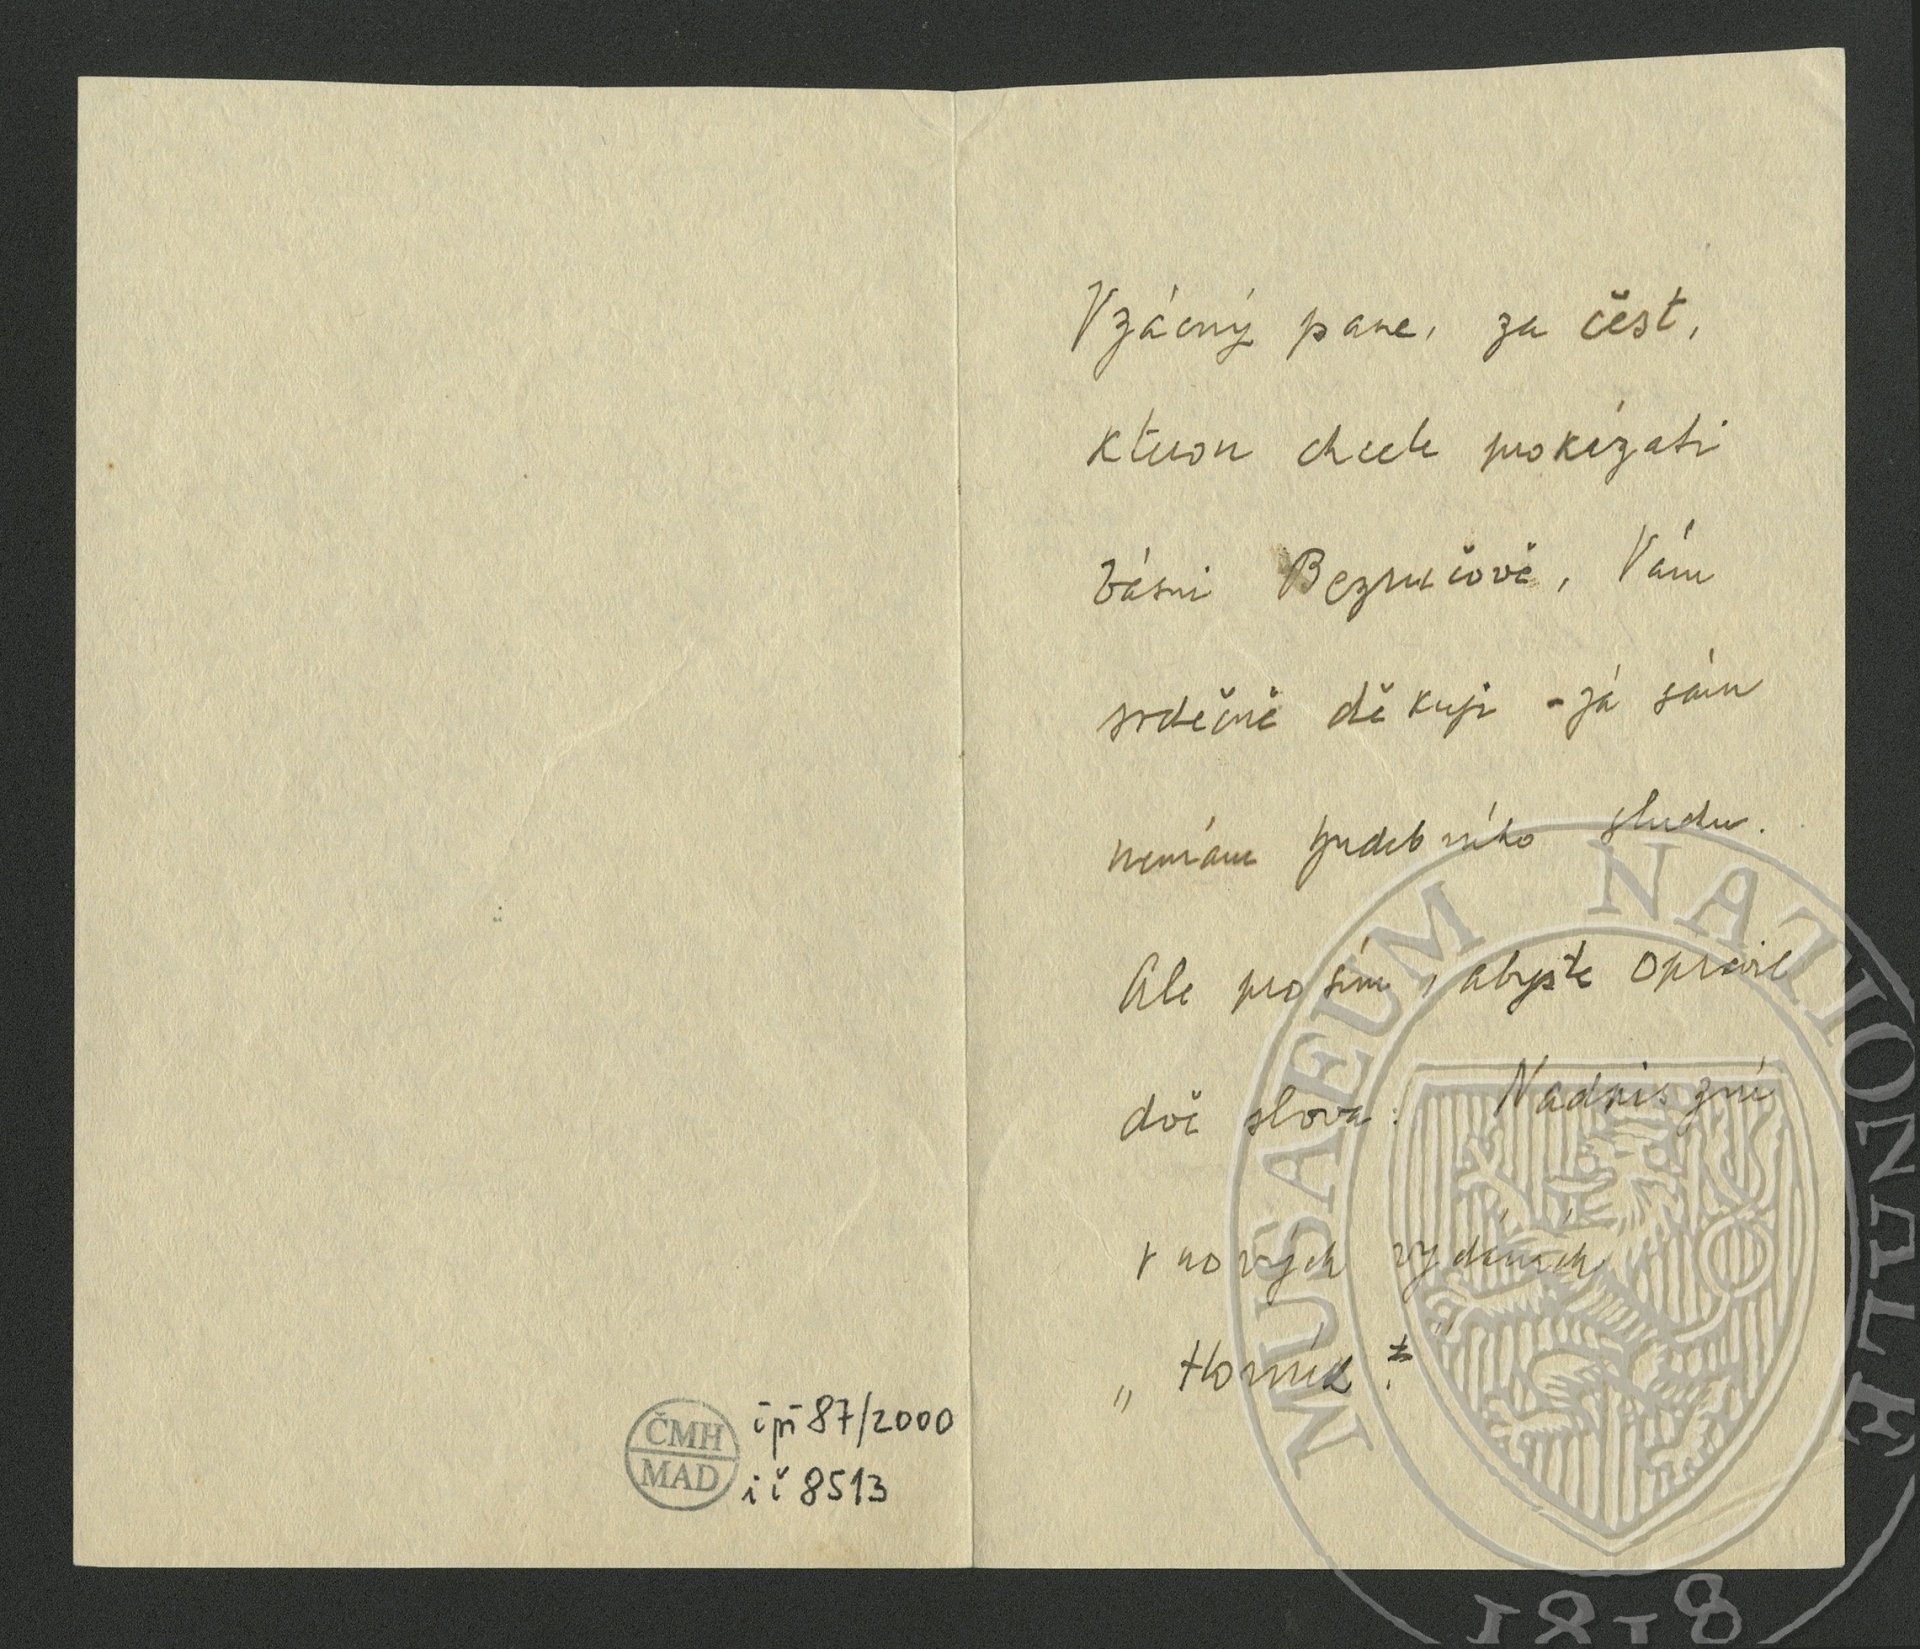 ČMH
MAD
i př 87/2000
i č 8513
Vzácný pane, za čest,
kterou chcete prokázati
básni Bezručově, Vám
srdečně děkuji - já sám
nemám hudebního sluchu.
Ale prosím, abyste opravil
dvě slova: Nadpis zní
v nových vydáních
„Horník“
MUSAEUM NATIONALE
1818